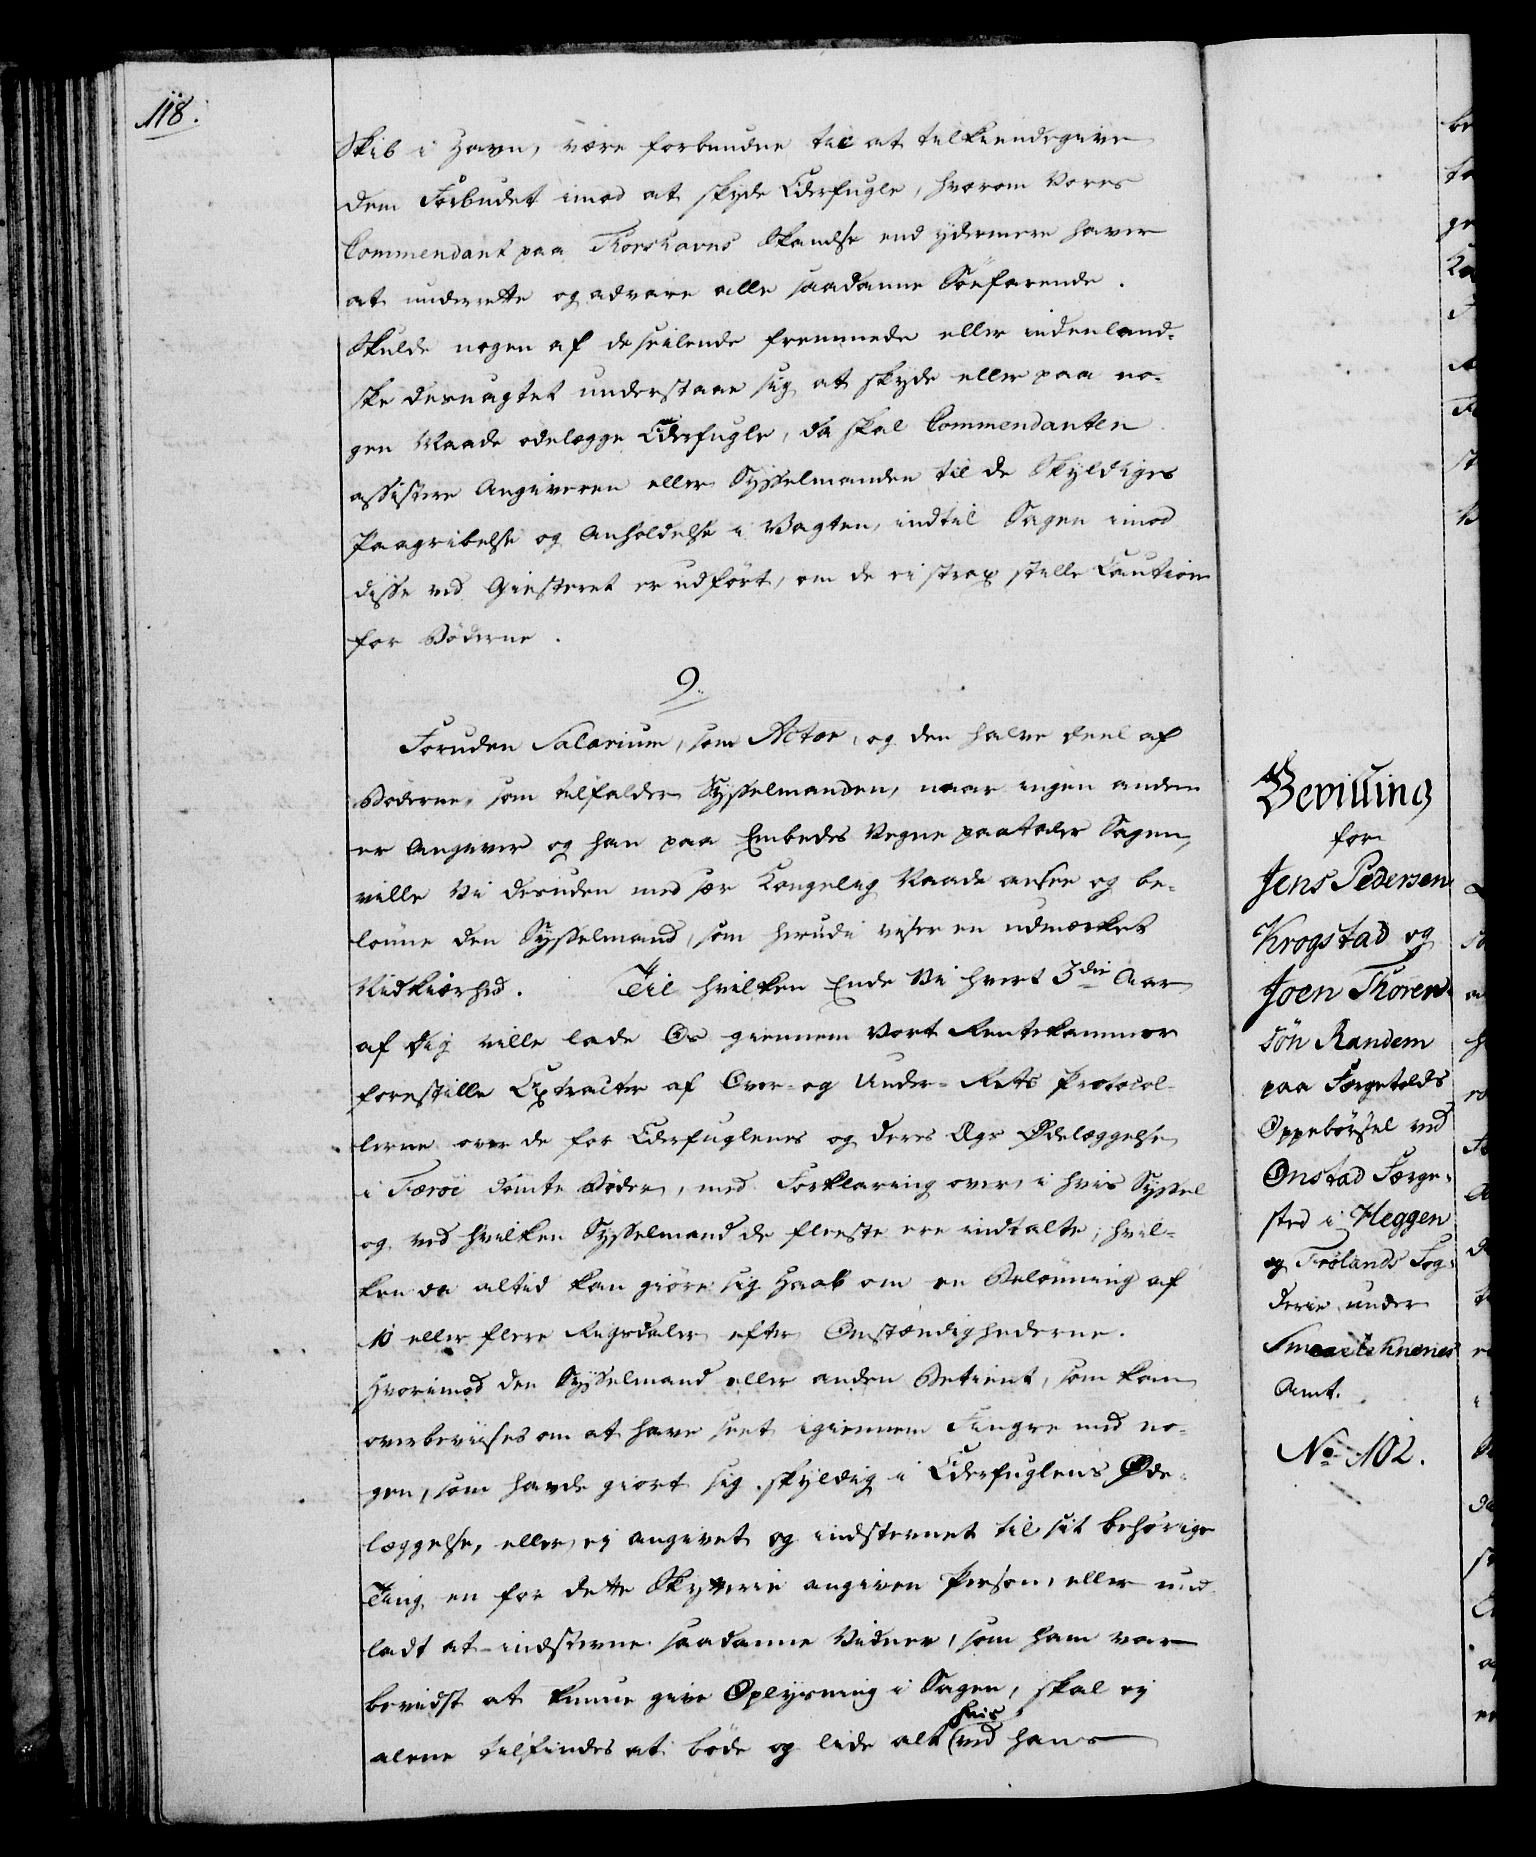 118.
Skib i Havn, være forbunden til at tilkiendegive
dem Forbudet imod at skyde Ederfugle, hvorom Vores
Commendant paa Thorshavns Skandse end ydermere haver
at underrette og advare alle saadanne Söefarende.
Skulde nogen af de seilende fremmede eller indenland-
ske desuagtet understaae sig at skyde eller paa no-
gen Maade ödelægge Ederfugle, da skal Commendanten
assistere Angiveren eller Sysselmanden til de Skyldiges
Paagribelse og Anholdelse i Vagten, indtil Sagen imod
disse ved Giesteret er udfört, om de ei strax stille Caution
for Böderne.
9.
Foruden Salarium, som Actor, og den halve Deel af
Böderne, som tilfalder Sysselmanden, naar ingen anden
er Angiver og han paa Embeds Vegne paataler Sagen,
ville Vi desuden med sær Kongelig Naade ansee og be-
lönne den Sysselmand, som herudi viser en udmærket
Nidkiærhed. Til hvilken Ende Vi hvert 3die Aar
af Dig ville lade Os giennem Vort Rentekammer
forestille Extracter af Over- og Under-Rets Protocol-
lerne over de for Ederfuglenes og deres Ægs Ödelæggelse
i Færöe dömte Böder, med Forklaring over, i hvis Syssel
og ved hvilken Sysselmand de fleeste ere indtalte; hvil-
ken da altid kan giöre sig Haab om en Belönning af
10 eller flere Rigsdaler efter Omstændighederne.
Hvorimod den Sysselmand eller anden Betient, som kan
overbeviises om at have seet igiennem Fingre med no-
gen, som havde giort sig skyldig i Ederfuglens Öde-
læggelse, eller ei angivet og indstevnet til sit behörige
Ting en for dette Skytterie angiven Person, eller und-
ladt at indstevne saadanne Vidner, som ham var
bevidst at kunne give Oplysning i Sagen, skal ei
alene tilfindes at böde og lide alt hvis ved hans
Bevilling
for
Jens Pedersen
Krogstad og
Joen Thoren-
sön Randem
paa Færgetolds
Oppebörsel ved
Onstad Færge-
sted i Heggen
og Frölands Fog-
derie under
Smaalehnenes
Amt.
No 102.